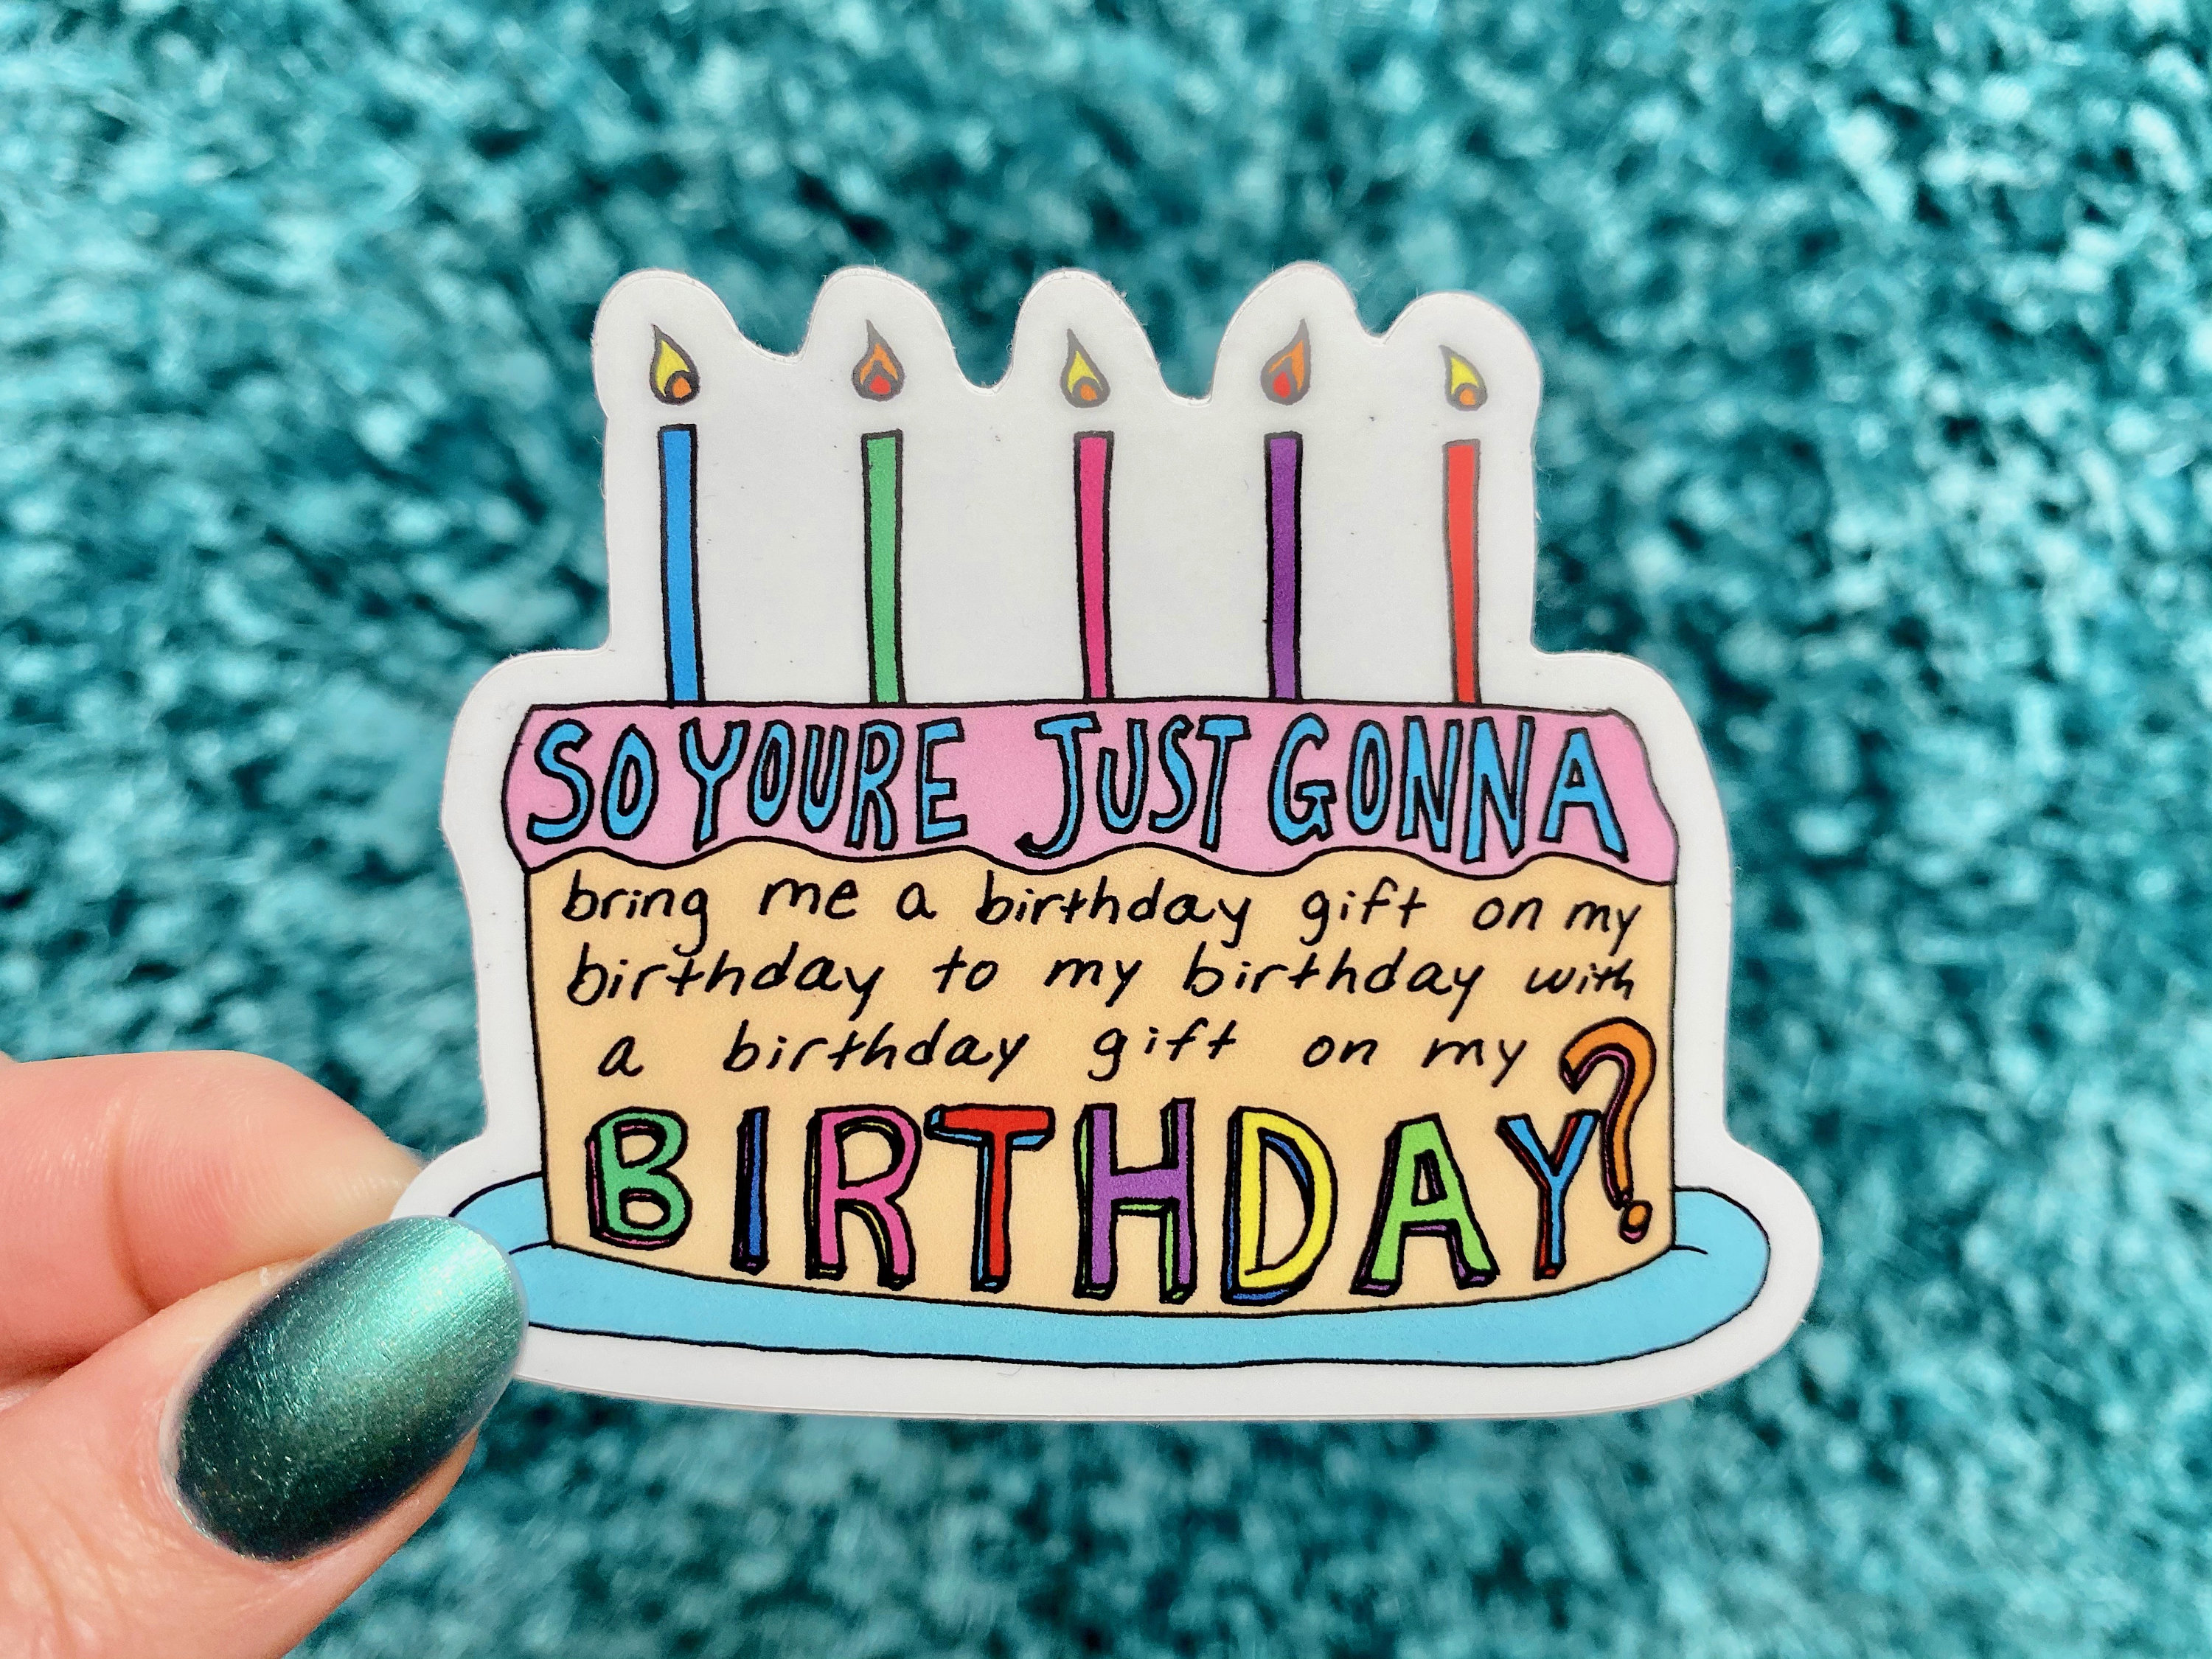 SO YOURE JUST GONNA
bring me a birthday gift on my
birthday to my birthday with
a birthday gift on my
BIRTHDAY?